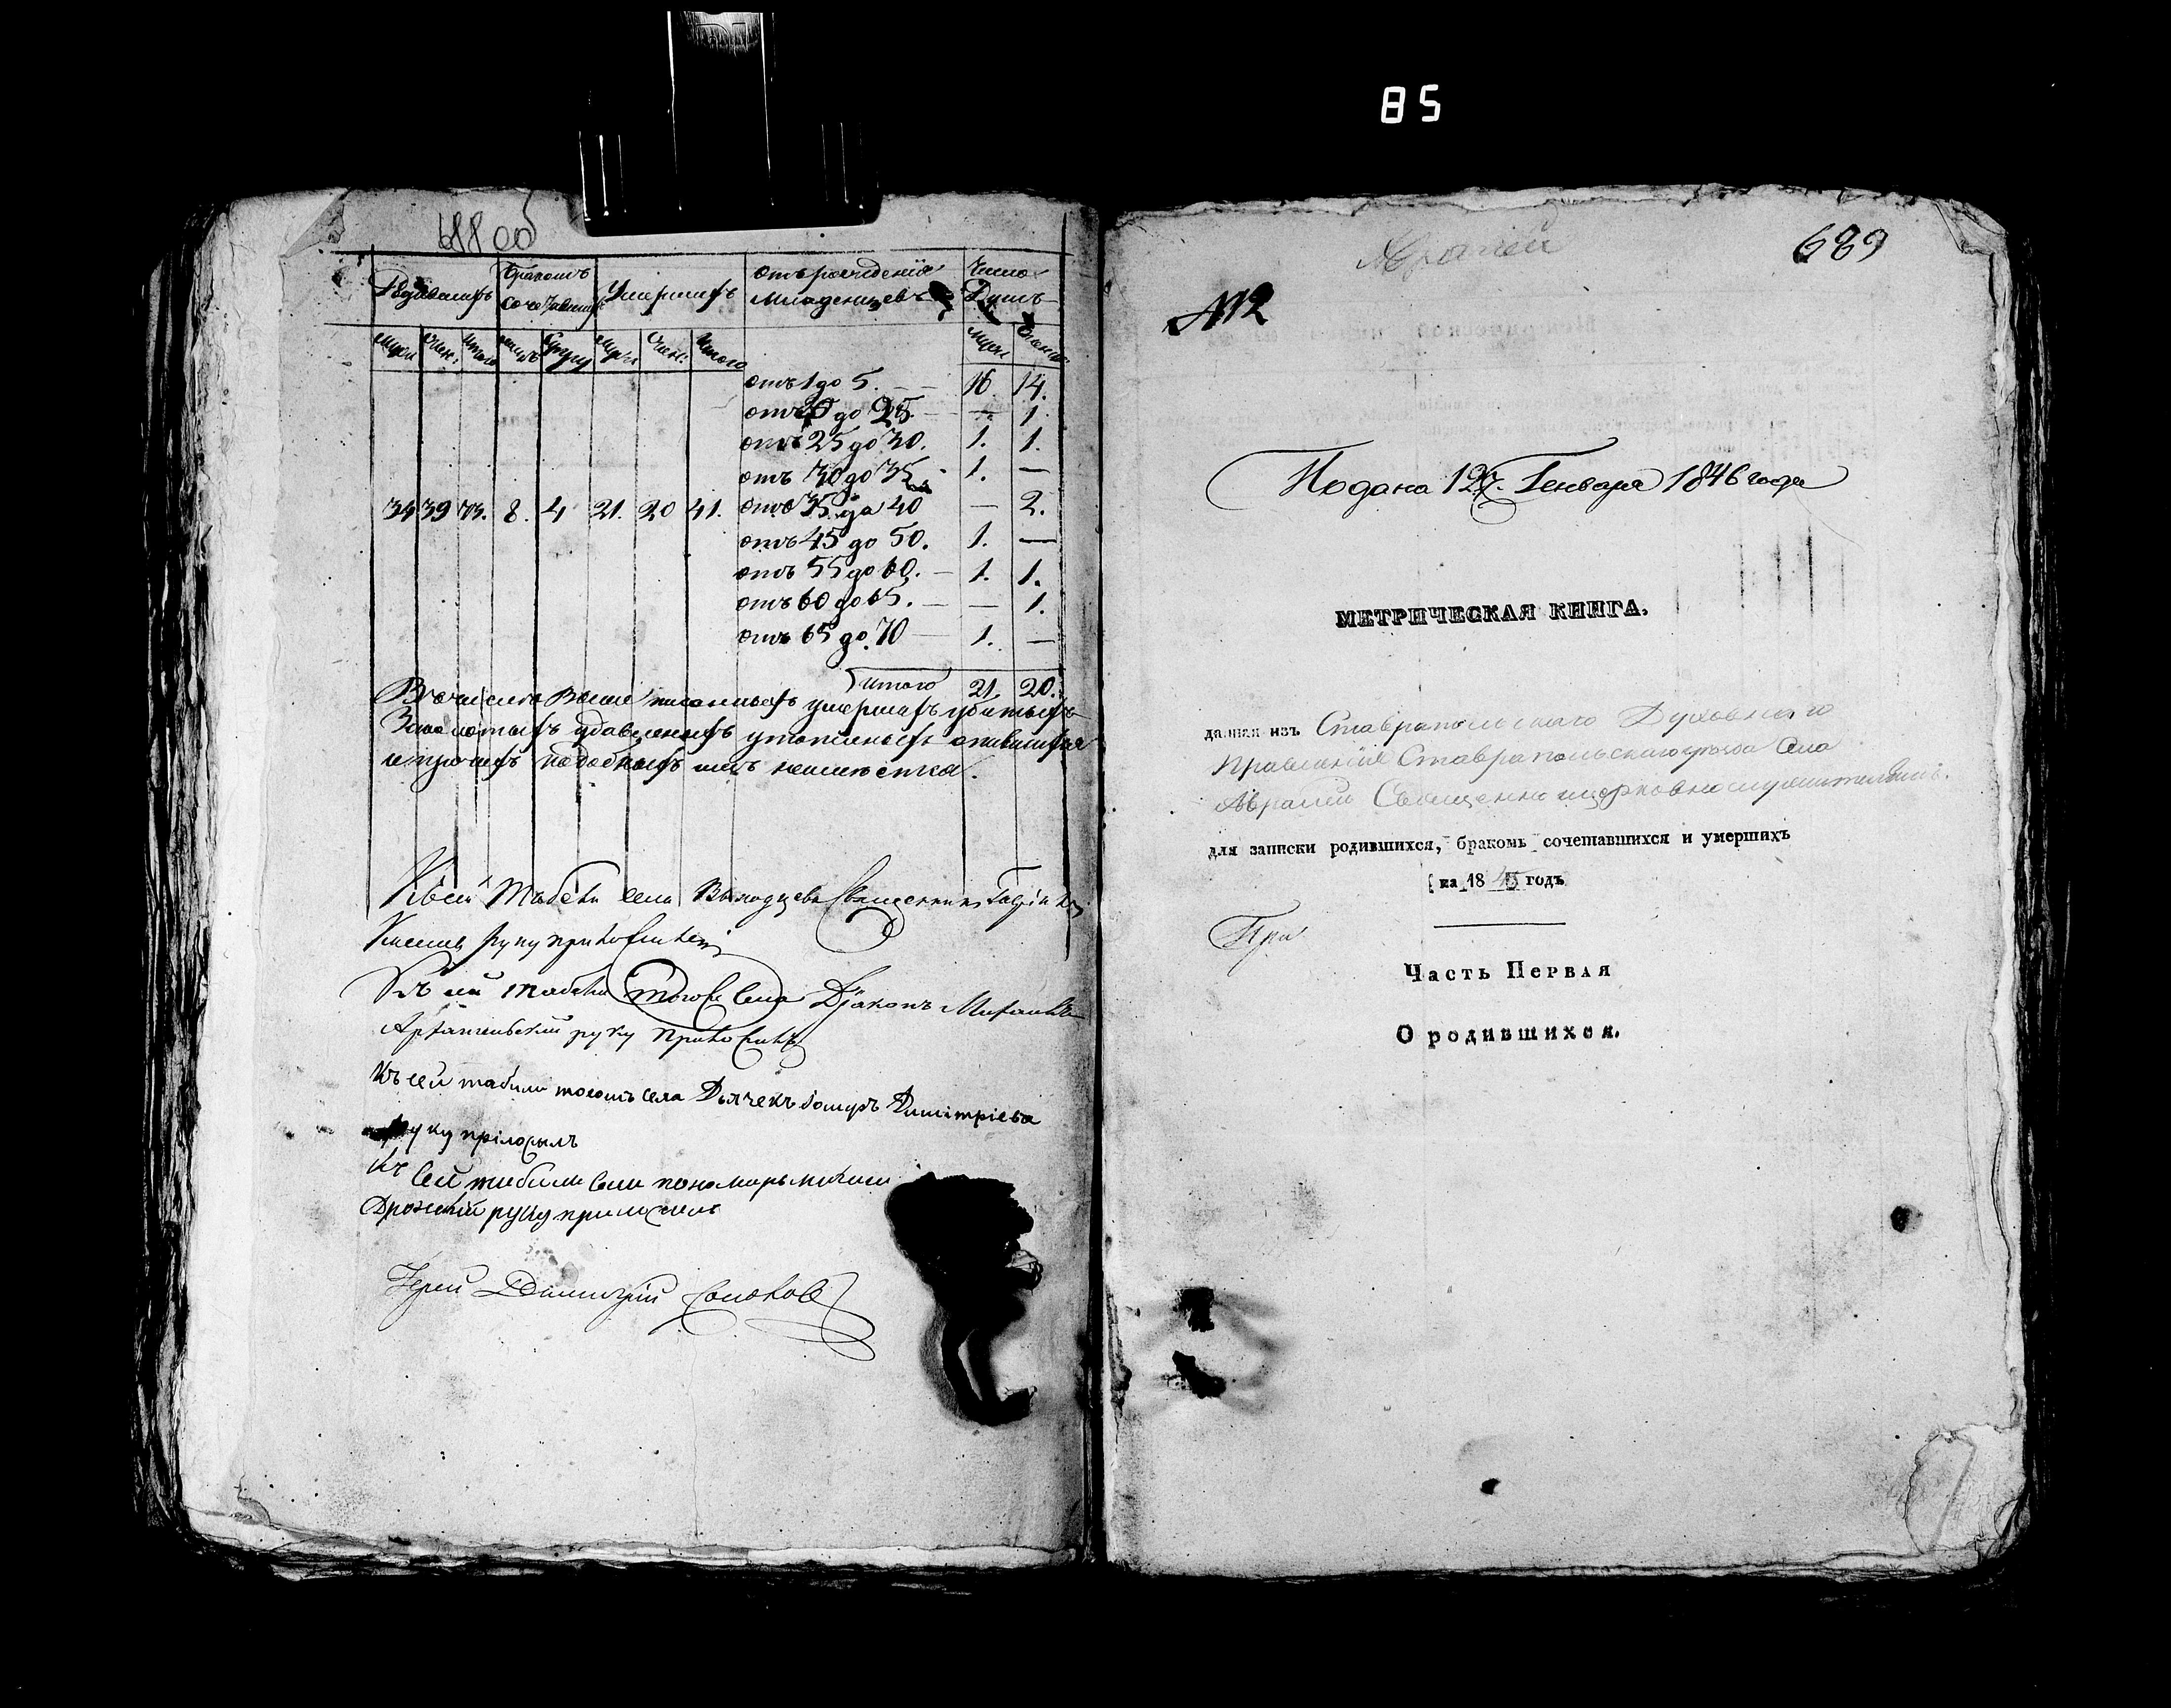 85
688 об
Родившихъ Бракомъ сочетавшихъ Умершихъ отъ рожденія младенцевъ Число Душъ
муж. жен. итого муж. жен. итого муж. женс.
отъ 1 до 5. — — 16. 14.
отъ 20 до 25. — — 1.
отъ 25 до 30. 1. 1.
отъ 30 до 35. 1. —
34 39 73. 8. 4 21. 20 41. отъ 35 до 40 — 2.
отъ 45 до 50. 1. —
отъ 55 до 60. — 1. 1.
отъ 60 до 65. — — 1.
отъ 65 до 70 — 1. —
итого 21. 20.
Въ числе выше писанныхъ умершихъ убитыхъ
удавленныхъ утопшихъ опившихся
и прочихъ подобныхъ имъ
Къ сей табели села Священникъ
руку приложилъ
Къ сей табели того села Діаконъ Михаилъ
Архангельскій руку приложилъ
Къ сей табели тогожъ села Дьячекъ Димітріевъ
руку пріложылъ
Къ сей табели села пономарь
руку приложилъ
Іерей Димитрій
689
Аврапей
№ 12
Подана 12. Генваря 1846 года
МЕТРИЧЕСКАЯ КНИГА.
данная изъ Ставропольскаго Духовнаго
Правленія Ставропольскаго уезда Села
Священно и церковнослужителямъ.
для записки родившихся, бракомъ сочетавшихся и умершихъ
на 1845 годъ
При
Часть Первая
О родившихся.